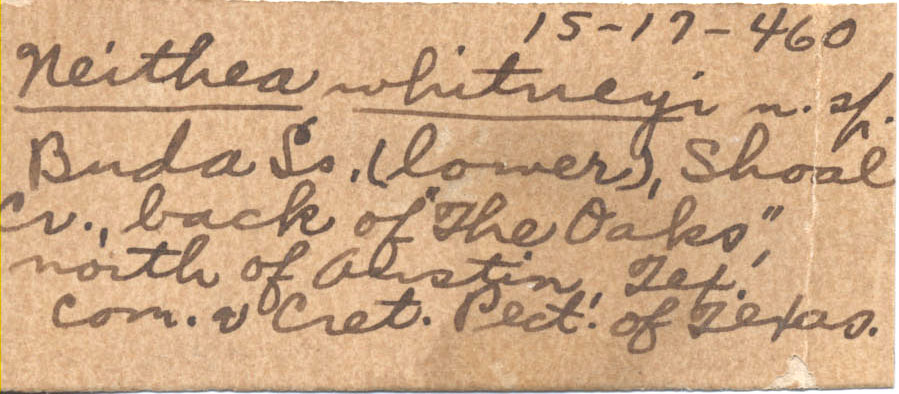 15-17-460
Neithea whitneyi n. sp.
Buda Ls. (lower), Shoal
Cr., back of "The Oaks",
north of Austin, Tex.
Com. Cret. Pect. of Texas.